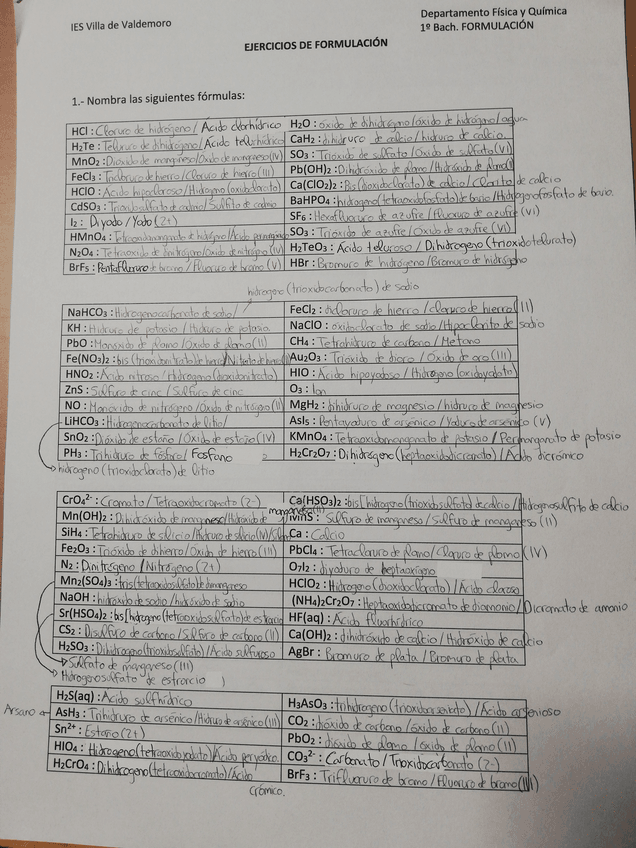 IES Villa de Valdemoro
Departamento Física y Química
1º Bach. FORMULACIÓN
EJERCICIOS DE FORMULACIÓN
1.- Nombra las siguientes fórmulas:
HCl : Cloruro de hidrógeno / Ácido clorhídrico
H₂Te : Telururo de dihidrógeno / Ácido telurhídrico
MnO₂ : Dióxido de manganeso / Óxido de manganeso (IV)
FeCl₃ : Tricloruro de hierro / Cloruro de hierro (III)
HClO : Ácido hipocloroso / Hidrógeno (oxidoclorato)
CdSO₃ : Trioxidosulfato de cadmio / Sulfito de cadmio
I₂ : Diyodo / Yodo (2+)
HMnO₄ : Tetraoxidomanganato de hidrógeno / Ácido permangánico
N₂O₄ : Tetraóxido de dinitrógeno / Óxido de nitrógeno (IV)
BrF₅ : Pentafluoruro de bromo / Fluoruro de bromo (V)
H₂O : óxido de dihidrógeno / óxido de hidrógeno / agua
CaH₂ : dihidruro de calcio / hidruro de calcio.
SO₃ : Trióxido de sulfato / Óxido de sulfato (VI)
Pb(OH)₂ : Dihidróxido de plomo / Hidróxido de plomo (II)
Ca(ClO₂)₂ : Bis (dioxidoclorato) de calcio / Clorito de calcio
BaHPO₄ : hidrogeno (tetraoxidofosfato) de bario / Hidrogenofosfato de bario.
SF₆ : Hexafluoruro de azufre / Fluoruro de azufre (VI)
SO₃ : Trióxido de azufre / Óxido de azufre (VI)
H₂TeO₃ : Ácido teluroso / Dihidrogeno (trioxidotelurato)
HBr : Bromuro de hidrógeno / Bromuro de hidrógeno
hidrogeno (trioxidocarbonato) de sodio
NaHCO₃ : Hidrogenocarbonato de sodio /
KH : Hidruro de potasio / Hidruro de potasio.
PbO : Monóxido de plomo / Óxido de plomo (II)
Fe(NO₃)₂ : bis (trioxidonitrato) de hierro / Nitrato de hierro (II)
HNO₂ : Ácido nitroso / Hidrogeno (dioxidonitrato)
ZnS : Sulfuro de cinc / Sulfuro de cinc
NO : Monóxido de nitrógeno / Óxido de nitrógeno (II)
LiHCO₃ : Hidrogenocarbonato de litio /
SnO₂ : Dióxido de estaño / Óxido de estaño (IV)
PH₃ : Trihidruro de fósforo / Fosfano
hidrogeno (trioxidoclorato) de litio
FeCl₂ : dicloruro de hierro / cloruro de hierro (II)
NaClO : oxidoclorato de sodio / Hipoclorito de sodio
CH₄ : Tetrahidruro de carbono / Metano
Au₂O₃ : Trióxido de dioro / Óxido de oro (III)
HIO : Ácido hipoyodoso / Hidrogeno (oxidoyodato)
O₃ : Ion
MgH₂ : dihidruro de magnesio / hidruro de magnesio
AsI₅ : Pentayoduro de arsénico / Yoduro de arsénico (V)
KMnO₄ : Tetraoxidomanganato de potasio / Permanganato de potasio
H₂Cr₂O₇ : Dihidrógeno (heptaoxidodicromato) / Ácido dicrómico
CrO₄²⁻ : Cromato / Tetraoxidocromato (2-)
Mn(OH)₂ : Dihidróxido de manganeso / Hidróxido de manganeso (II)
SiH₄ : Tetrahidruro de silicio / Hidruro de silicio (IV) / Silano
Fe₂O₃ : Trióxido de dihierro / Óxido de hierro (III)
N₂ : Dinitrógeno / Nitrógeno (2+)
Mn₂(SO₄)₃ : tris (tetraoxidosulfato) de dimanganeso
NaOH : hidróxido de sodio / hidróxido de sodio
Sr(HSO₄)₂ : bis [hidrogeno (tetraoxidosulfato)] de estroncio
CS₂ : Disulfuro de carbono / Sulfuro de carbono (II)
H₂SO₃ : Dihidrogeno (trioxidosulfato) / Ácido sulfuroso
Sulfato de manganeso (III)
Hidrogenosulfato de estroncio
Ca(HSO₃)₂ : bis [hidrogeno (trioxidosulfato)] de calcio / Hidrogenosulfito de calcio
MnS : Sulfuro de manganeso / Sulfuro de manganeso (II)
Ca : Calcio
PbCl₄ : Tetracloruro de plomo / Cloruro de plomo (IV)
O₇I₂ : diyoduro de heptaoxígeno
HClO₂ : Hidrogeno (dioxidoclorato) / Ácido cloroso
(NH₄)₂Cr₂O₇ : Heptaoxidodicromato de diamonio / Dicromato de amonio
HF(aq) : Ácido fluorhídrico
Ca(OH)₂ : dihidróxido de calcio / Hidróxido de calcio
AgBr : Bromuro de plata / Bromuro de plata
H₂S(aq) : Ácido sulfhídrico
Arsano
AsH₃ : Trihidruro de arsénico / Hidruro de arsénico (III)
Sn²⁺ : Estaño (2+)
HIO₄ : Hidrogeno (tetraoxidoyodato) / Ácido peryódico.
H₂CrO₄ : Dihidrogeno (tetraoxidocromato) / Ácido
crómico.
H₃AsO₃ : trihidrogeno (trioxidoarseniato) / Ácido arsenioso
CO₂ : dióxido de carbono / óxido de carbono (II)
PbO₂ : dióxido de plomo / óxido de plomo (II)
CO₃²⁻ : Carbonato / Trioxidocarbonato (2-)
BrF₃ : Trifluoruro de bromo / Fluoruro de bromo (III)